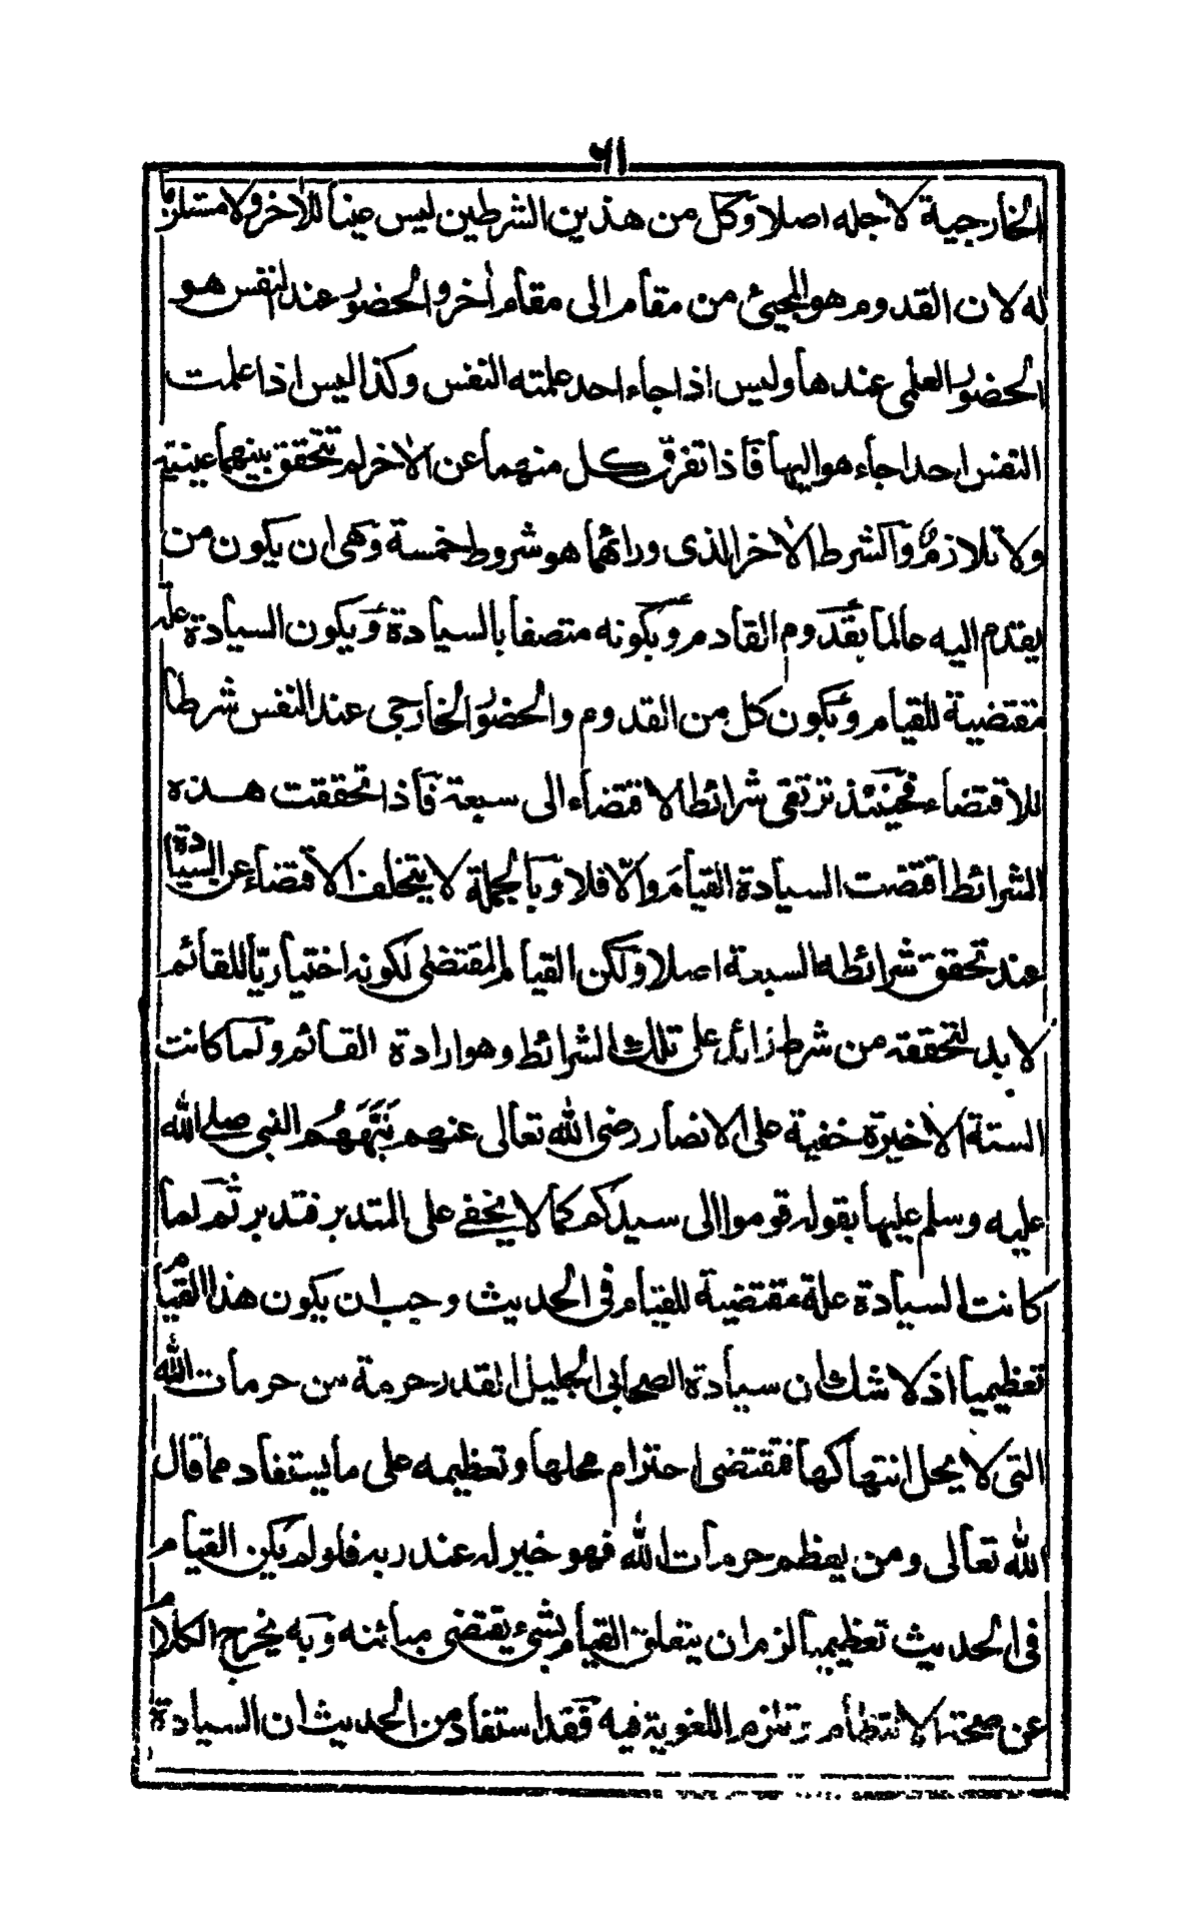 ٦١
الخارجية لاجله اصلا وكل من هذين الشرطين ليس عينا للأخر ولا مستلزما
له لان القدوم هو المجيئ من مقام الى مقام أخر والحضور عند النفس هو
الحضور العلمى عندها وليس اذا جاء احد علمته النفس وكذا ليس اذا علمت
النفس احدا جاء هو اليها فاذا تفرق كل منهما عن الأخر لم تتحقق بينهما عينية
ولا تلازم والشرط الأخر الذى ورائهما هو شروط خمسة وهى ان يكون من
يقدم اليه عالما بقدوم القادم وبكونه متصفا بالسيادة وبكون السيادة علة
مقتضية للقيام وبكون كل من القدوم والحضور الخارجى عند النفس شرطا
للاقتضاء فحينئذ ترتقى شرائط الاقتضاء الى سبعة فاذا تحققت هذه
الشرائط اقتضت السيادة القيام والّا فلا وبالجملة لا يتخلف الاقتضاء عن السيادة
عند تحقق شرائطه السبعة اصلا ولكن القيام المقتضى لكونه اختياريّا للقائم
لا بد لتحققه من شرط زائد على تلك الشرائط وهو ارادة القائم ولما كانت
الستة الاخيرة خفية على الانصار رضى الله تعالى عنهم نَبَّهَهُم النبى صلے الله
عليه وسلم عليها بقوله قوموا الى سيدكم كما لا يخفے على المتدبر فتدبر ثم لما
كانت السيادة علة مقتضية للقيام فى الحديث وجب ان يكون هذا القيام
تعظيميا اذ لا شك ان سيادة الصحابى الجليل القدر حرمة من حرمات الله
التى لا يحل انتهاكها فتقتضى احترام محلها وتعظيمه على ما يستفاد مما قال
الله تعالى ومن يعظم حرمات الله فهو خير له عند ربه فلو لم يكن القيام
فى الحديث تعظيميا لزم ان يتعلق القيام بشئ يقتضى مبائنه وبه يخرج الكلام
عن صحته الانتظام وتلزم اللغوية فيه فقد استفاد من الحديث ان السيادة